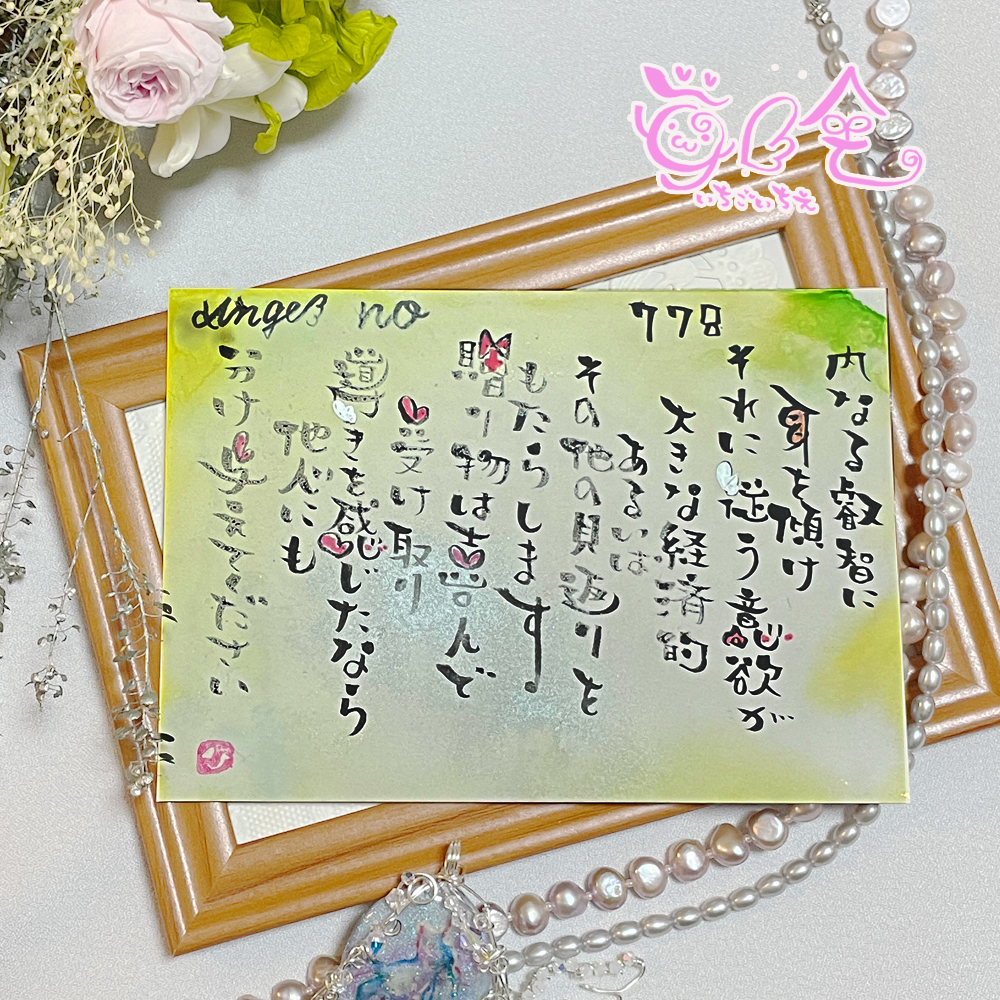 Angel no 778
内なる叡智に
耳を傾け
それに従う意欲が
大きな経済的
あるいは
その他の見返りを
もたらします。
贈り物は喜んで
受け取り
導きを感じたなら
他人にも
分け与えてください
いちごいちえ